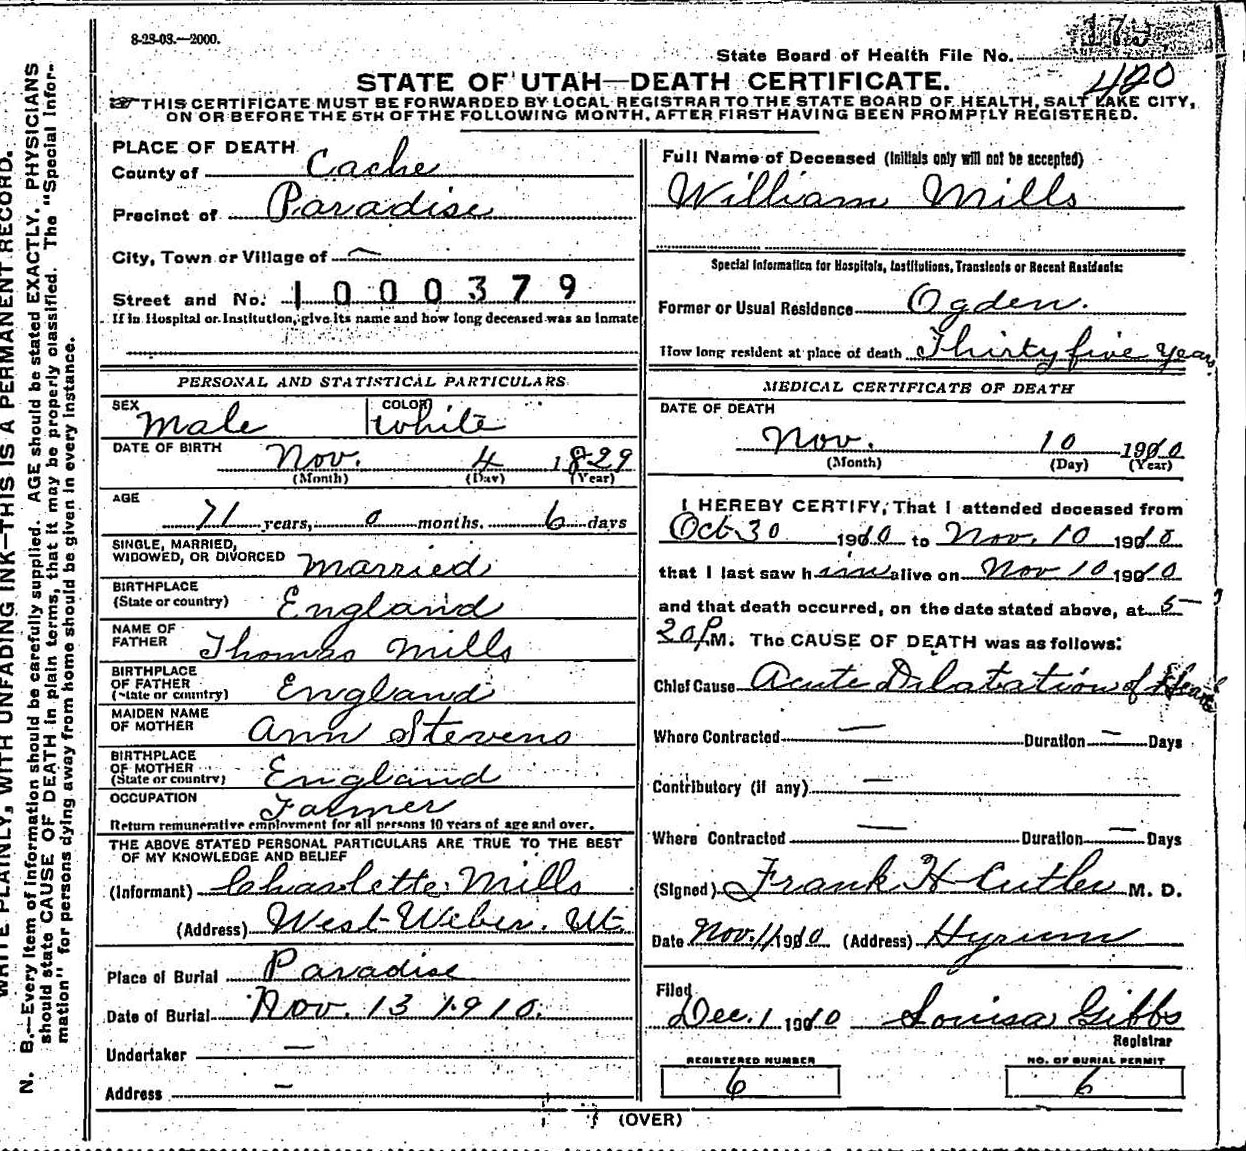 8-23-03.—2000.
179
State Board of Health File No.
420
STATE OF UTAH—DEATH CERTIFICATE.
☞THIS CERTIFICATE MUST BE FORWARDED BY LOCAL REGISTRAR TO THE STATE BOARD OF HEALTH, SALT LAKE CITY,
ON OR BEFORE THE 5TH OF THE FOLLOWING MONTH, AFTER FIRST HAVING BEEN PROMPTLY REGISTERED.
PLACE OF DEATH
County of Cache
Precinct of Paradise
City, Town or Village of —
Street and No. 1000379
If in Hospital or Institution, give its name and how long deceased was an Inmate
PERSONAL AND STATISTICAL PARTICULARS
SEX Male COLOR White
DATE OF BIRTH Nov. 4 1829
(Month) (Day) (Year)
AGE 71 years, 0 months, 6 days
SINGLE, MARRIED,
WIDOWED, OR DIVORCED Married
BIRTHPLACE
(State or country) England
NAME OF
FATHER Thomas Mills
BIRTHPLACE
OF FATHER
(State or country) England
MAIDEN NAME
OF MOTHER Ann Stevens
BIRTHPLACE
OF MOTHER
(State or country) England
OCCUPATION Farmer
Return remunerative employment for all persons 10 years of age and over.
THE ABOVE STATED PERSONAL PARTICULARS ARE TRUE TO THE BEST
OF MY KNOWLEDGE AND BELIEF
(Informant) Charlotte Mills
(Address) West Weber. Ut.
Place of Burial Paradise
Date of Burial Nov. 13 1910.
Undertaker —
Address —
Full Name of Deceased (Initials only will not be accepted)
William Mills
Special Information for Hospitals, Institutions, Transients or Recent Residents:
Former or Usual Residence Ogden.
How long resident at place of death Thirty five years
MEDICAL CERTIFICATE OF DEATH
DATE OF DEATH
Nov. 10 1910
(Month) (Day) (Year)
I HEREBY CERTIFY, That I attended deceased from
Oct. 30 1910 to Nov. 10 1910
that I last saw him alive on Nov 10 1910
and that death occurred, on the date stated above, at 5
20 P M. The CAUSE OF DEATH was as follows:
Chief Cause Acute Dilatation of Heart
Where Contracted — Duration — Days
Contributory (if any) —
Where Contracted — Duration — Days
(Signed) Frank H Cutler M. D.
Date Nov. 11 1910 (Address) Hyrum
Filed
Dec. 1 1910 Louisa Gibbs
Registrar
REGISTERED NUMBER
6
NO. OF BURIAL PERMIT
6
(OVER)
WRITE PLAINLY, WITH UNFADING INK—THIS IS A PERMANENT RECORD.
N. B.—Every item of information should be carefully supplied. AGE should be stated EXACTLY. PHYSICIANS
should state CAUSE OF DEATH in plain terms, that it may be properly classified. The "Special Infor-
mation" for persons dying away from home should be given in every instance.